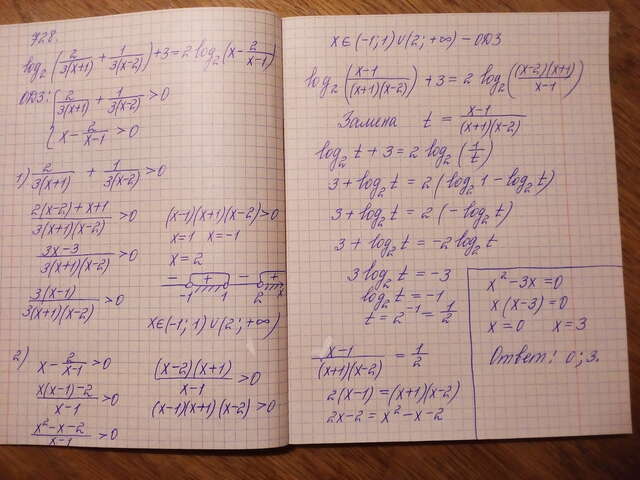 728.
log₂(2/3(x+1) + 1/3(x-2)) + 3 = 2 log₂(x - 2/x-1)
ОДЗ: { 2/3(x+1) + 1/3(x-2) > 0
x - 2/x-1 > 0
1) 2/3(x+1) + 1/3(x-2) > 0
2(x-2)+x+1/3(x+1)(x-2) > 0
3x-3/3(x+1)(x-2) > 0
3(x-1)/3(x+1)(x-2) > 0
(x-1)(x+1)(x-2) > 0
x=1 x=-1
x=2
- + - +
-1 1 2 x
x∈(-1; 1)∪(2; +∞)
2) x - 2/x-1 > 0
x(x-1)-2/x-1 > 0
x²-x-2/x-1 > 0
(x-2)(x+1)/x-1 > 0
(x-1)(x+1)(x-2) > 0
x∈(-1; 1)∪(2; +∞) - ОДЗ
log₂(x-1/(x+1)(x-2)) + 3 = 2 log₂((x-2)(x+1)/x-1)
Замена t = x-1/(x+1)(x-2)
log₂t + 3 = 2 log₂(1/t)
3 + log₂t = 2(log₂1 - log₂t)
3 + log₂t = 2(-log₂t)
3 + log₂t = -2log₂t
3 log₂t = -3
log₂t = -1
t = 2⁻¹ = 1/2
x-1/(x+1)(x-2) = 1/2
2(x-1) = (x+1)(x-2)
2x-2 = x²-x-2
x²-3x=0
x(x-3)=0
x=0 x=3
Ответ: 0; 3.